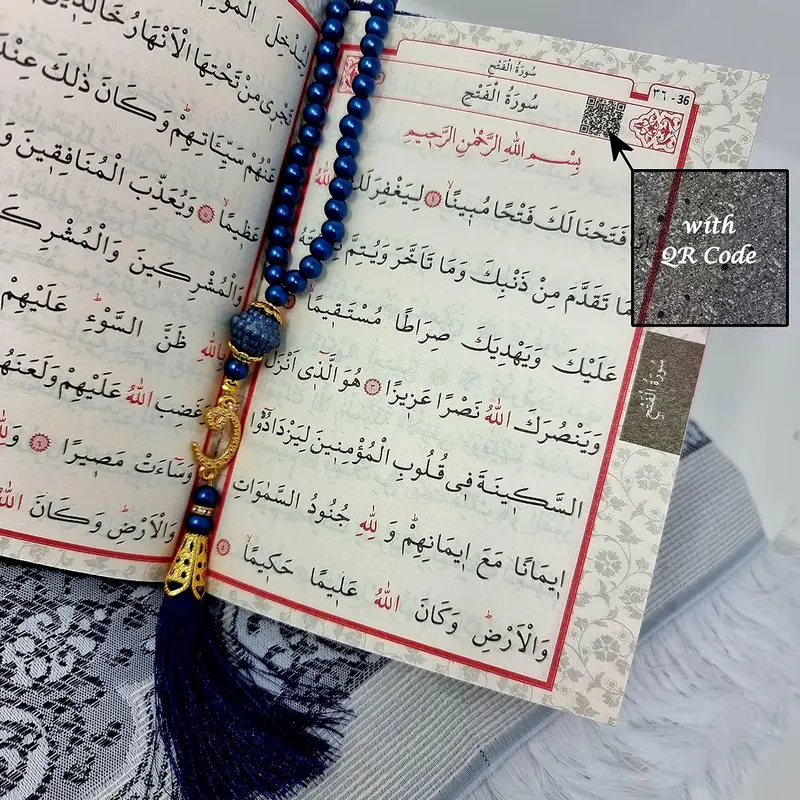 سُورَةُ الْفَتْحِ
٣٦ - 36
سُورَةُ الْفَتْحِ
بِسْمِ اللّٰهِ الرَّحْمٰنِ الرَّحِيمِ
فَتَحْنَا لَكَ فَتْحًا مُبِينًا ١ لِيَغْفِرَ لَكَ اللّٰهُ
مَا تَقَدَّمَ مِنْ ذَنْبِكَ وَمَا تَاَخَّرَ وَيُتِمَّ
عَلَيْكَ وَيَهْدِيَكَ صِرَاطًا مُسْتَقِيمًا
وَيَنْصُرَكَ اللّٰهُ نَصْرًا عَزِيزًا ٣ هُوَ الَّذِٓى اَنْزَلَ
السَّكِينَةَ فِى قُلُوبِ الْمُؤْمِنِينَ لِيَزْدَادُٓوا
اِيمَانًا مَعَ اِيمَانِهِمْ وَلِلّٰهِ جُنُودُ السَّمٰوَاتِ
وَالْاَرْضِ وَكَانَ اللّٰهُ عَلِيمًا حَكِيمًا ٤
with
QR Code
سُورَةُ الْفَتْحِ
لِيُدْخِلَ
تَجْرِى مِنْ تَحْتِهَا الْاَنْهَارُ خَالِدِينَ
عَنْهُمْ سَيِّـَٔاتِهِمْ وَكَانَ ذٰلِكَ عِنْدَ
عَظِيمًا ٥ وَيُعَذِّبَ الْمُنَافِقِينَ
وَالْمُشْرِكِينَ وَالْمُشْرِكَ
بِاللّٰهِ ظَنَّ السَّوْءِ عَلَيْهِمْ
غَضِبَ اللّٰهُ عَلَيْهِمْ وَلَعَنَهُ
وَسَٓاءَتْ مَصِيرًا ٦
وَالْاَرْضِ وَكَانَ اللّٰهُ